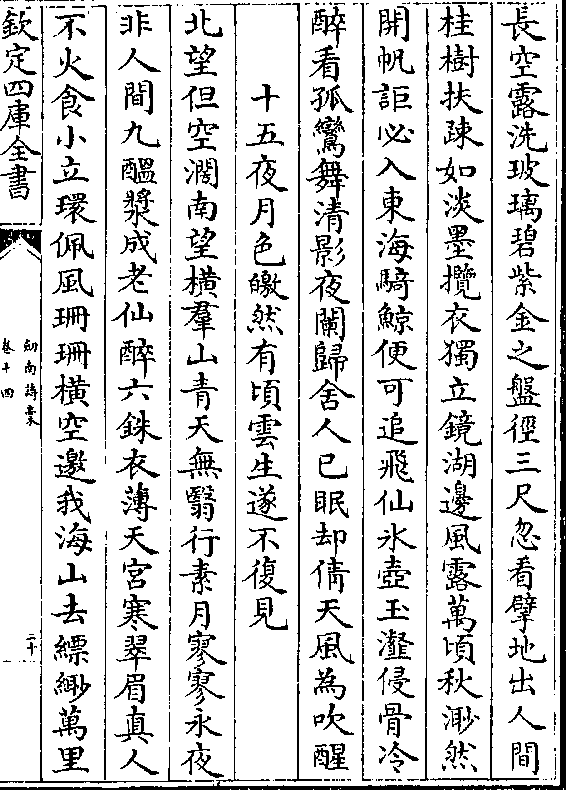 長空露洗玻璃碧紫金之盤徑三尺忽看擘地出人間
桂樹扶疎如淡墨攬衣獨立鏡湖邊風露萬頃秋渺然
開帆詎必入東海騎鯨便可追飛仙氷壺玉瀣侵骨冷
醉看孤鸞舞清影夜闌歸舍人已眠却倩天風為吹醒
十五夜月色皦然有頃雲生遂不復見
北望但空濶南望橫羣山青天無翳行素月寥寥永夜
非人間九醖漿成老仙醉六銖衣薄天宮寒翠眉真人
不火食小立環佩風珊珊橫空邀我海山去縹緲萬里
欽定四庫全書
劒南詩稾
卷十四
二十